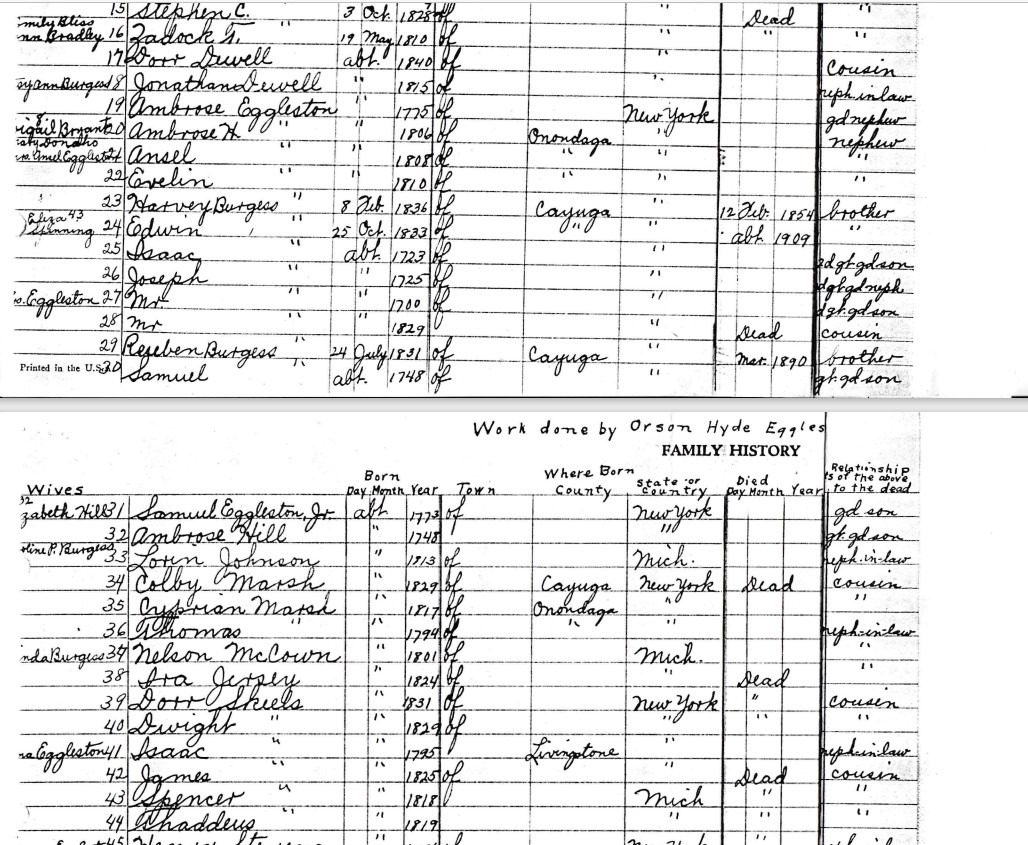 15 Stephen C. " 3 Oct. 1828 of " Dead "
Emily Bliss
Ann Bradley 16 Zadock T. " 19 May 1810 of " " "
17 Dorr Duwell abt. 1840 of " cousin
Burgess 18 Jonathan Duwell " 1815 of " neph.in law
19 Ambrose Eggleston " 1775 of New York gd nephew
Abigail Bryant 20 Ambrose H. " " 1806 of Onondaga " nephew
Ansel Egglest 21 Ansel " " 1808 of " " "
22 Evelin " " 1810 of " "
23 Harvey Burgess 8 Feb. 1836 of Cayuga " 12 Feb. 1854 brother
Eliza 43
Spinning 24 Edwin " 25 Oct. 1833 of " abt 1909 "
25 Isaac " abt. 1723 of " gt gdson
26 Joseph " " 1725 of " gd neph
s. Eggleston 27 Mr " " 1700 of " gt. gd son
28 Mr " " 1829 " Dead cousin
29 Reuben Burgess 24 July 1831 of Cayuga " Mar. 1890 brother
Printed in the U.S. 30 Samuel " abt. 1748 of " gt. gd son
Work done by Orson Hyde Eggles
FAMILY HISTORY
Wives Born Day Month Year Town Where Born County State or Country Died Day Month Year Relationship of the above to the dead
32
zabeth Hill 31 Samuel Eggleston, Jr. abt 1773 of New York gd son
32 Ambrose Hill " 1748 " gt. gd son
line P. Burgess 33 Lorin Johnson " 1813 of Mich. neph.in-law
34 Colby Marsh " 1829 of Cayuga New York Dead cousin
35 Cyprian Marsh " 1817 of Onondaga " "
36 Thomas " " 1794 of " neph-in-law
nda Burgess 37 Nelson McCown " 1801 of Mich. "
38 Ira Jersey " 1824 of " Dead "
39 Dorr Skeels " 1831 of New York " cousin
40 Dwight " " 1829 of " " "
na Eggleston 41 Isaac " " 1795 Livingstone " neph-in-law
42 James " " 1825 of " Dead cousin
43 Spencer " " 1818 Mich " "
44 Thaddeus " " 1819 " " "